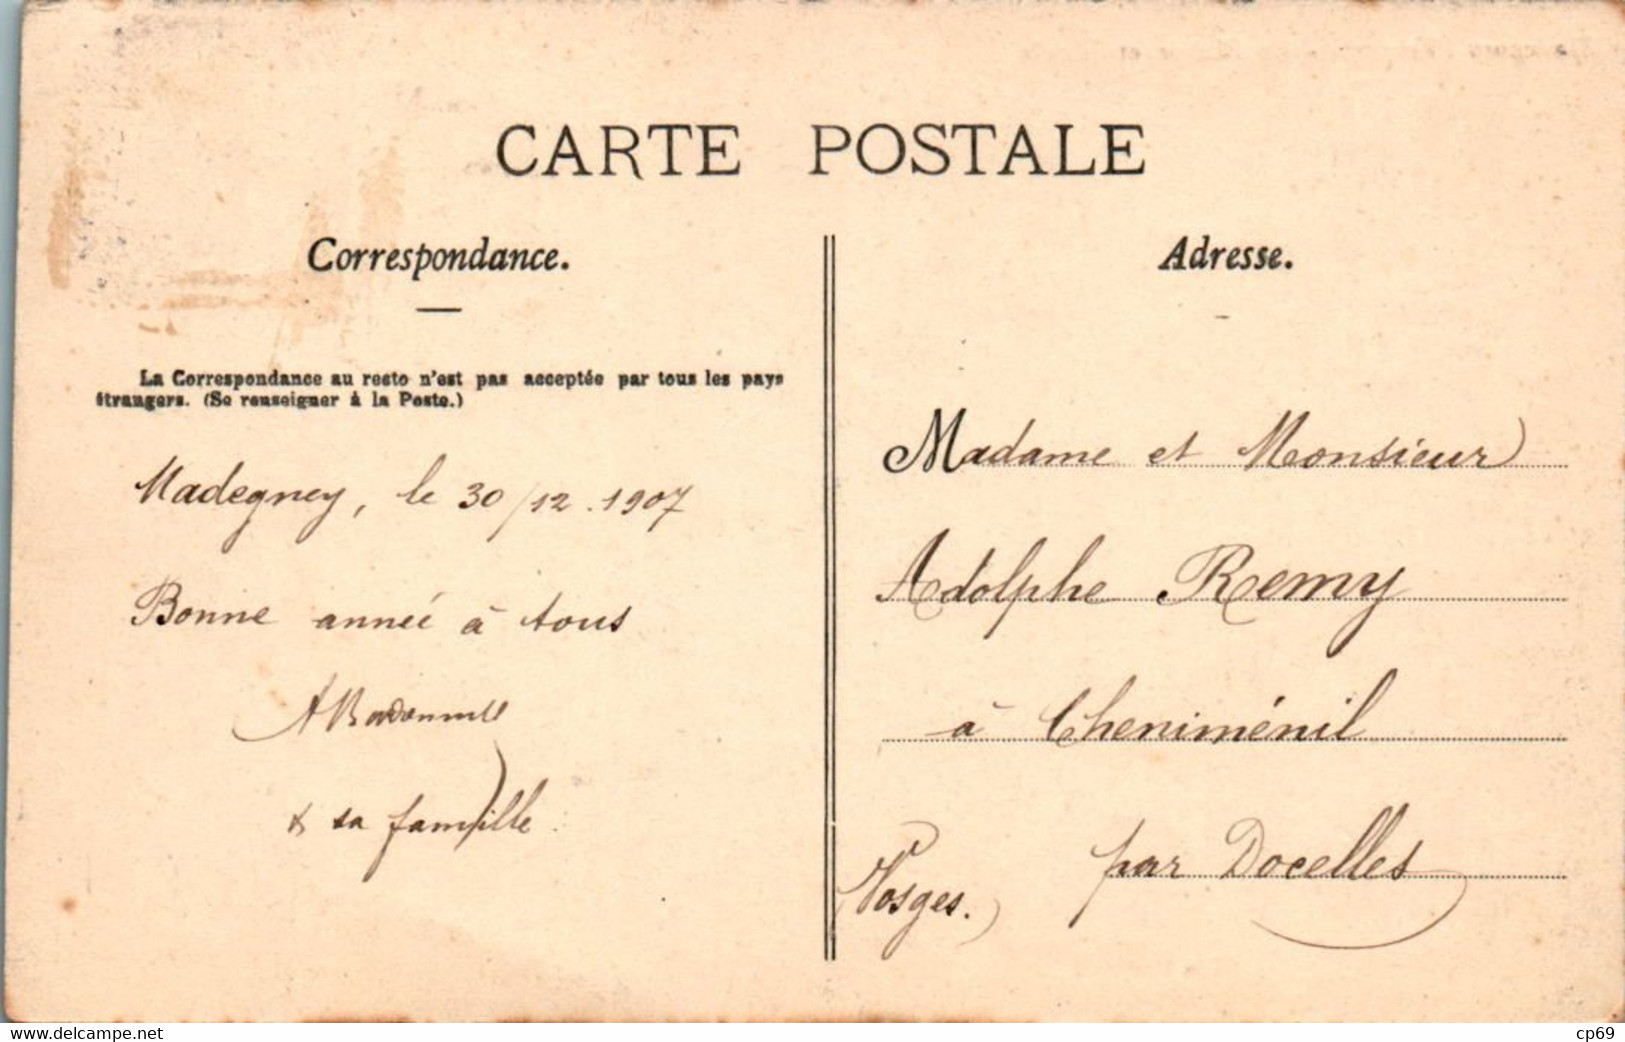 CARTE POSTALE
Correspondance.
La Correspondance au recto n'est pas acceptée par tous les pays
étrangers. (Se renseigner à la Poste.)
Madegney, le 30/12.1907
Bonne année à tous
& sa famille.
Adresse.
Madame et Monsieur
Adolphe Remy
à Cheniménil
par Docelles
(Vosges.)
www.delcampe.net
cp69